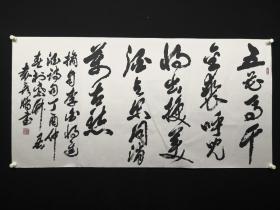 五花马千
金裘呼兒
将出换美
酒与尔同消
萬古愁
摘自李白将进
酒诗句丁酉仲
春